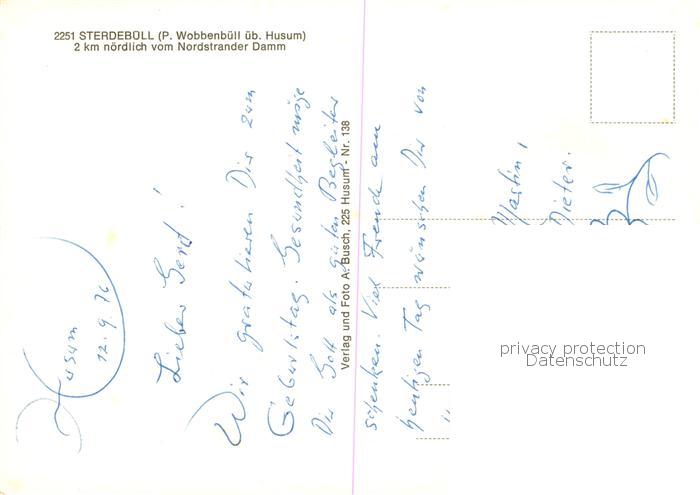 2251 STERDEBÜLL (P. Wobbenbüll üb. Husum)
2 km nördlich vom Nordstrander Damm
Verlag und Foto A. Busch, 225 Husum - Nr. 138
Husum
12.9.76
Lieber Gerd!
Wir gratulieren Dir zum
Geburtstag. Gesundheit möge
Dir Gott als guten Begleiter
schenken. Viel Freude am
heutigen Tag wünschen Dir von
Martin,
Dieter.
privacy protection
Datenschutz